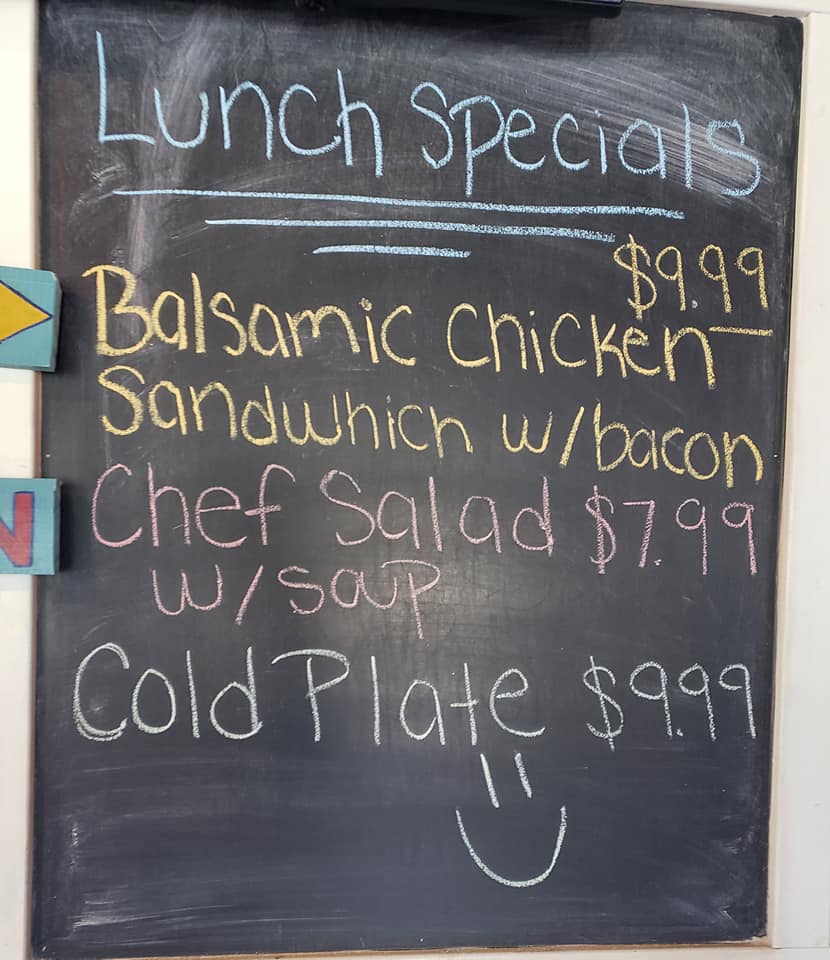 Lunch Specials
$9.99
Balsamic Chicken
Sandwhich w/bacon
Chef Salad $7.99
w/soup
Cold Plate $9.99
N